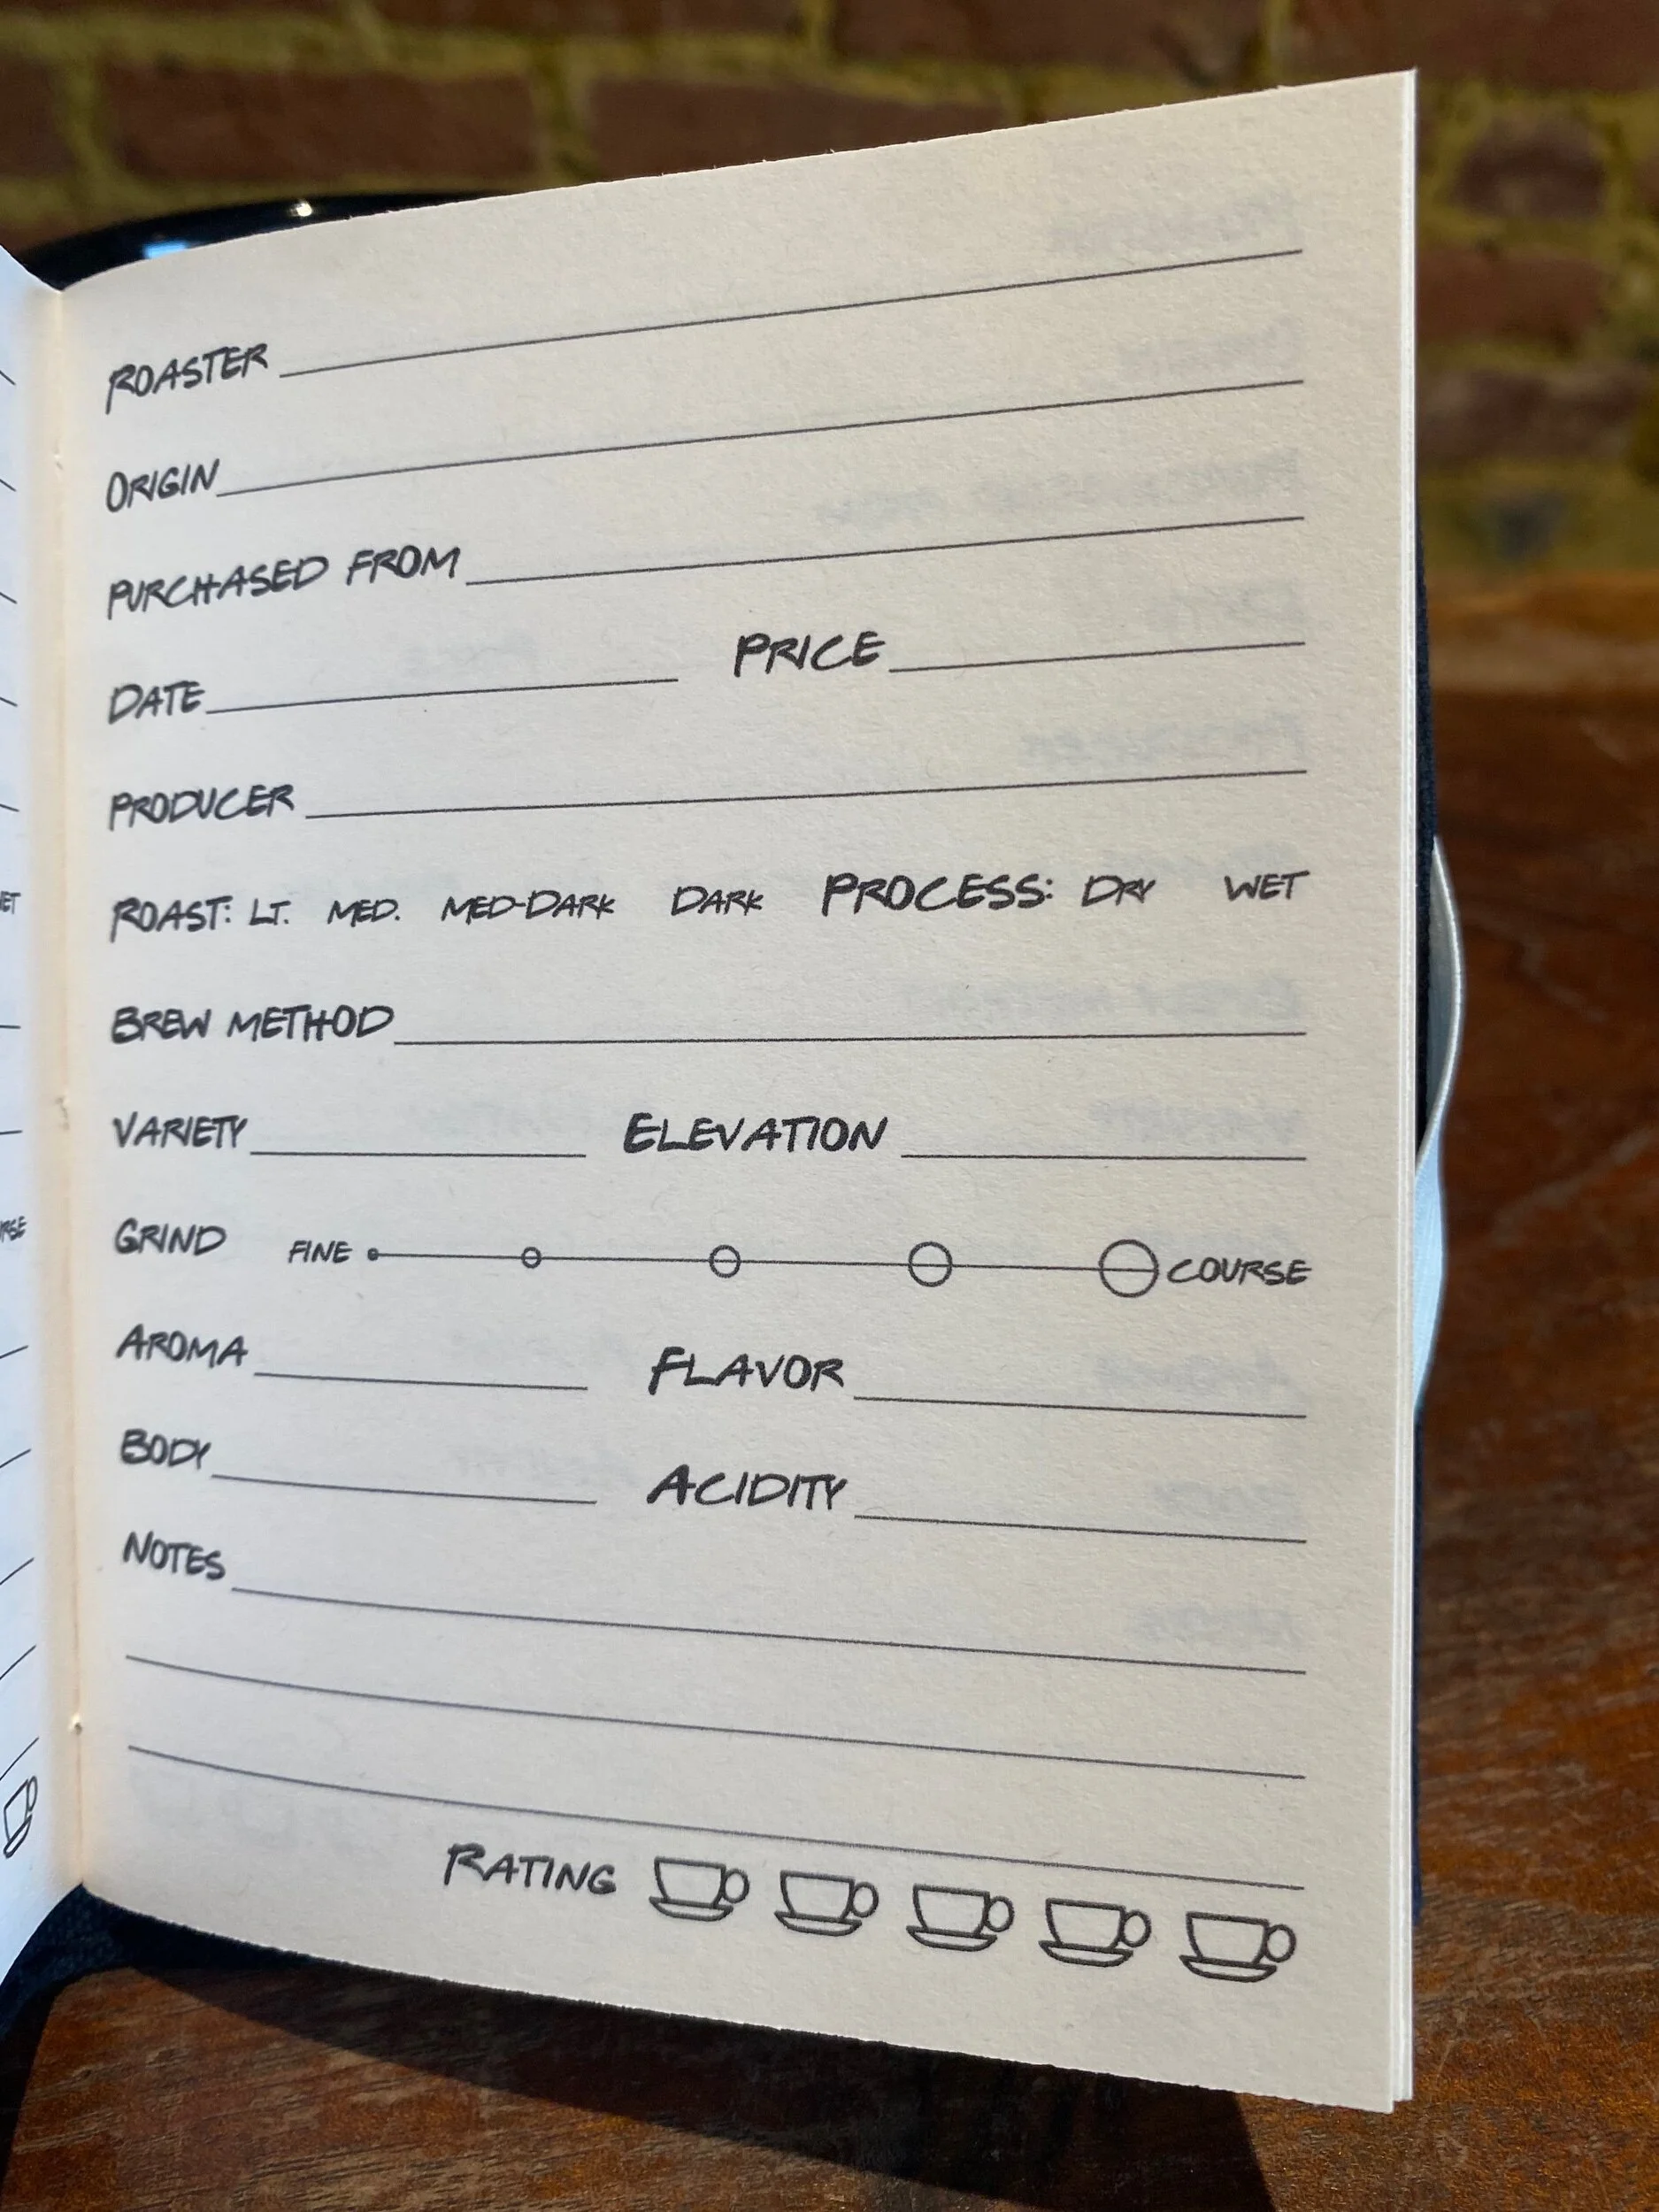 ROASTER
ORIGIN
PURCHASED FROM
DATE PRICE
PRODUCER
ROAST: LT. MED. MED-DARK DARK PROCESS: DRY WET
BREW METHOD
VARIETY ELEVATION
GRIND FINE COURSE
AROMA FLAVOR
BODY ACIDITY
NOTES
RATING